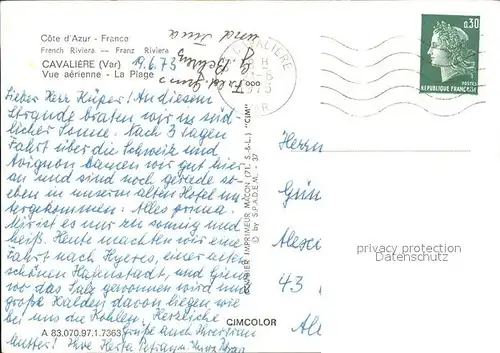 Côte d'Azur - France
French Riviera — Franz Riviera
CAVALIÈRE (Var)
Vue aérienne - La Plage
19.6.73
Lieber Herr Küper! An diesem
Strande braten wir in süd-
licher Sonne. Nach 3 Tagen
Fahrt über die Schweiz und
Avignon kamen wir gut hier
an und sind noch gerade so
eben in unserm alten Hotel un-
tergekommen. Alles prima.
Mir ist es nur zu sonnig und
heiß. Heute machten wir eine
Fahrt nach Hyeres, einer alten
schönen Hafenstadt, und Giens
wo das Salz gewonnen wird und
große Halden davon liegen wie
bei uns die Kohlen. Herzliche
Grüße auch Ihrer Frau
Mutter! Ihre Herta
Frdl. Gruss
und
CAVALIERE
VAR
0,30
REPUBLIQUE FRANÇAISE
POSTES
COURRIER IMPRIMEUR MACON (71. S.-&-L.) "CIM"
© by S.P.A.D.E.M. - 37
Herrn
Alexi
43
privacy protection
Datenschutz
A 83.070.97.1.7363
CIMCOLOR